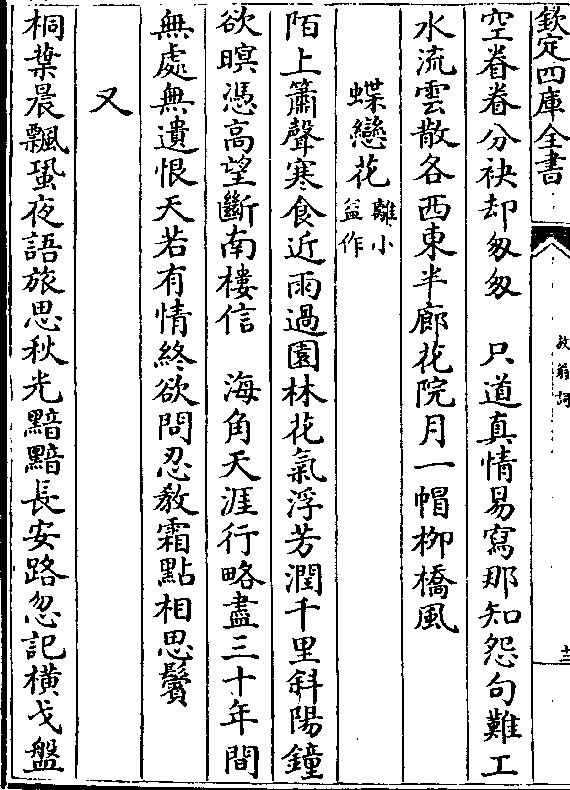 欽定四庫全書
放翁詞
十三
空眷眷分袂却匆匆　只道真情易寫那知怨句難工
水流雲散各西東半廊花院月一帽柳橋風
蝶戀花離小益作
陌上簫聲寒食近雨過園林花氣浮芳潤千里斜陽鐘
欲暝憑高望斷南樓信　海角天涯行略盡三十年間
無處無遺恨天若有情終欲問忍教霜點相思鬢
又
桐葉晨飄蛩夜語旅思秋光黯黯長安路忽記橫戈盤